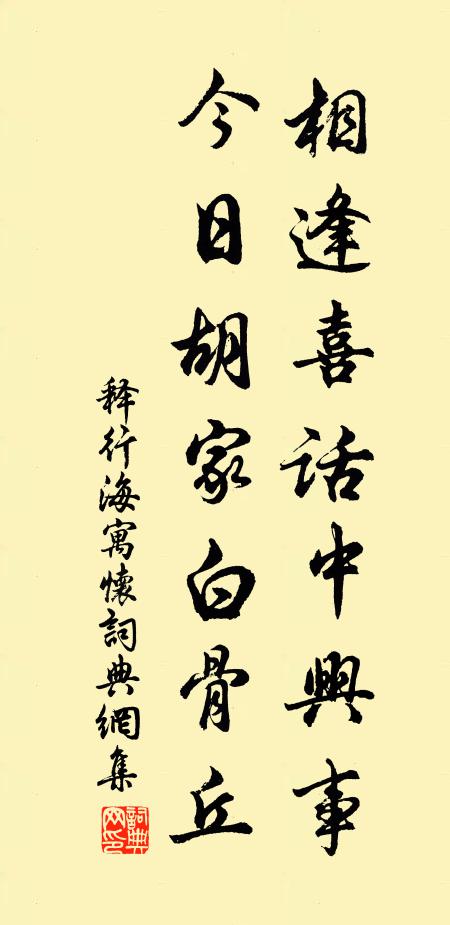 相逢喜话中興事
今日胡家白骨丘
释行海寓懷詞典網集
詞典網印